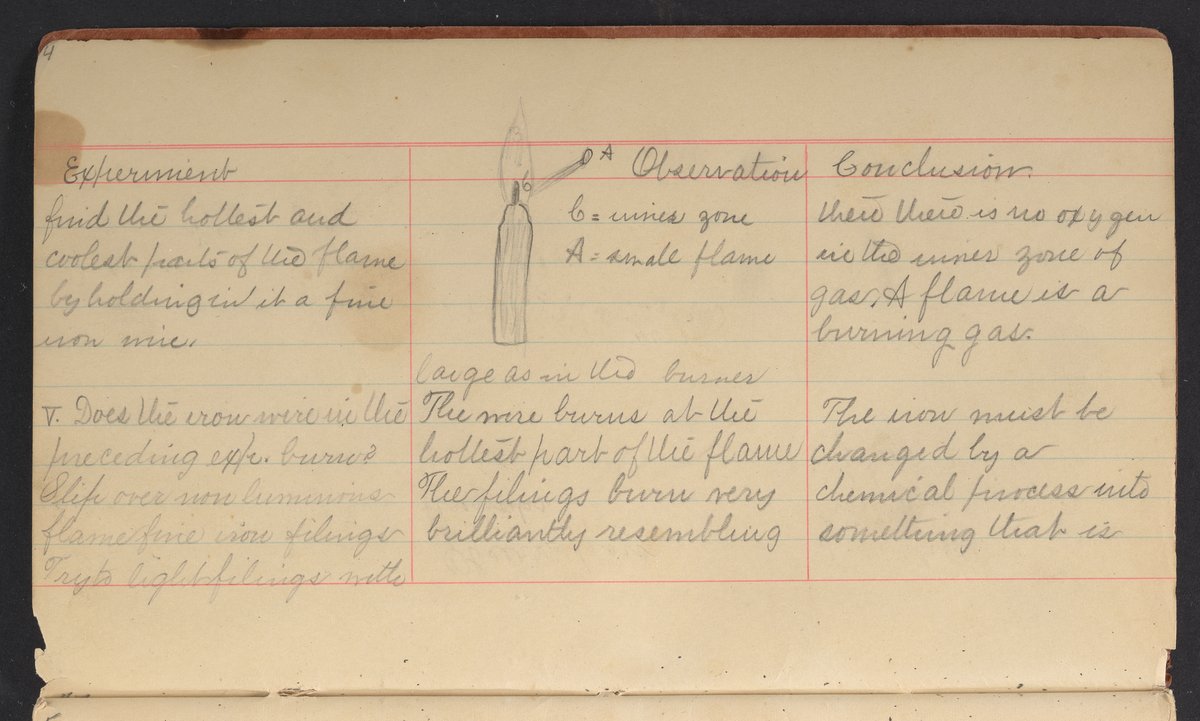 4
Experiment
find the hottest and
coolest parts of the flame
by holding in it a fine
iron wire.
V. Does the iron wire in the
preceding exp. burn?
Slip over non luminous
flame fine iron filings
Try to light filings with
A
b
Observation
b = inner zone
A = small flame
large as in the burner
The wire burns at the
hottest part of the flame
The filings burn very
brilliantly resembling
Conclusion.
there there is no oxygen
in the inner zone of
gas. A flame is a
burning gas.
The iron must be
changed by a
chemical process into
something that is